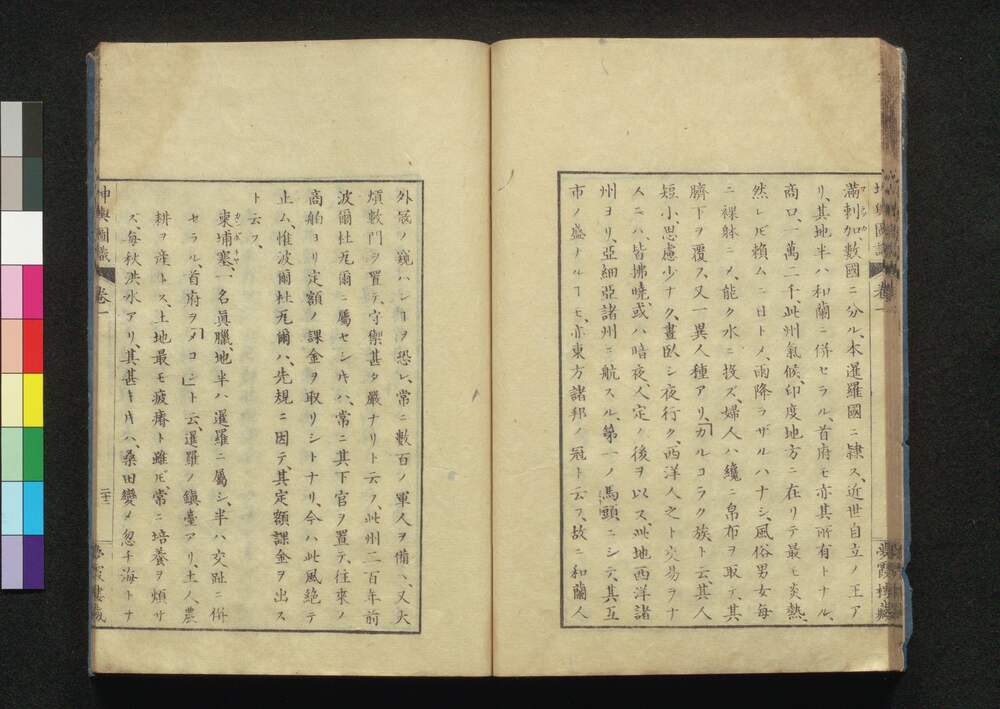 滿剌加、數國ニ分ル、本暹羅國ニ隷ス、近世自立ノ王ア
リ、其地半ハ和蘭ニ併セラル首府モ亦其所有トナル、
商口、一萬二千、此州氣候、印度地方ニ在リテ最モ炎熱、
然レ𪜈賴ムニ日トメ、雨降ラザルハナシ、風俗男女毎
ニ裸躰ニメ、能ク水ニ投ズ、婦人ハ纔ニ帛布ヲ取テ、其
臍下ヲ覆ス、又一異人種アリ、「カルコラク族ト云、其人
短小、思慮少ナク、晝臥シ夜行ク、西洋人之ト交易ヲナ
スニハ、皆拂曉、或ハ暗夜、人定ノ後ヲ以ス、此地西洋諸
州ヨリ、亞細亞諸州ニ航スル、第一ノ馬頭ニシテ、其互
市ノ盛ナルヿモ、亦東方諸邦ノ冠ト云フ、故ニ和蘭人
外冦ノ窺ハンヿヲ恐レ、常ニ數百ノ軍人ヲ備ヘ、又大
熕數門ヲ置テ、守禦甚タ嚴ナリト云フ、此州二百年前
波爾杜瓦爾ニ屬セシ𪜈ハ、常ニ其下官ヲ置テ、往來ノ
商舶ヨリ定額ノ課金ヲ取リシトナリ、今ハ此風絶テ
止ム、惟波爾杜瓦爾ハ、先規ニ因テ、其定額課金ヲ出ス
ト云フ、
柬埔寨、一名眞臘、地半ハ暹羅ニ屬シ、半ハ交趾ニ併
セラル首府ヲ「メコン」ト云、暹羅ノ鎭臺アリ、土人農
耕ヲ産トス、土地最モ疲瘠ト雖𪜈、常ニ培養ヲ煩サ
ズ、毎秋洪水アリ、其甚キ𪜈ハ、桑田變メ忽チ海トナ
坤輿圖識
卷一
二十二
夢霞樓藏